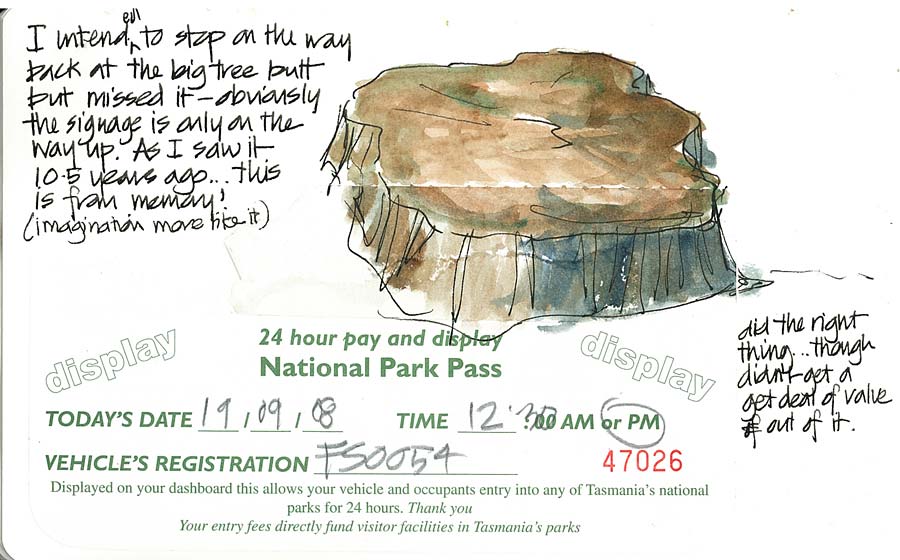 I intended to stop on the way
back at the big tree butt
but missed it – obviously
the signage is only on the
way up. As I saw it
10.5 years ago... this
is from memory!
(imagination more like it)
24 hour pay and display
National Park Pass
display
display
TODAY'S DATE 19 / 09 / 08 TIME 12:30 :00 AM or PM
VEHICLE'S REGISTRATION FS0054
47026
Displayed on your dashboard this allows your vehicle and occupants entry into any of Tasmania's national
parks for 24 hours. Thank you
Your entry fees directly fund visitor facilities in Tasmania's parks
did the right
thing... though
didn't get a
get deal of value
out of it.